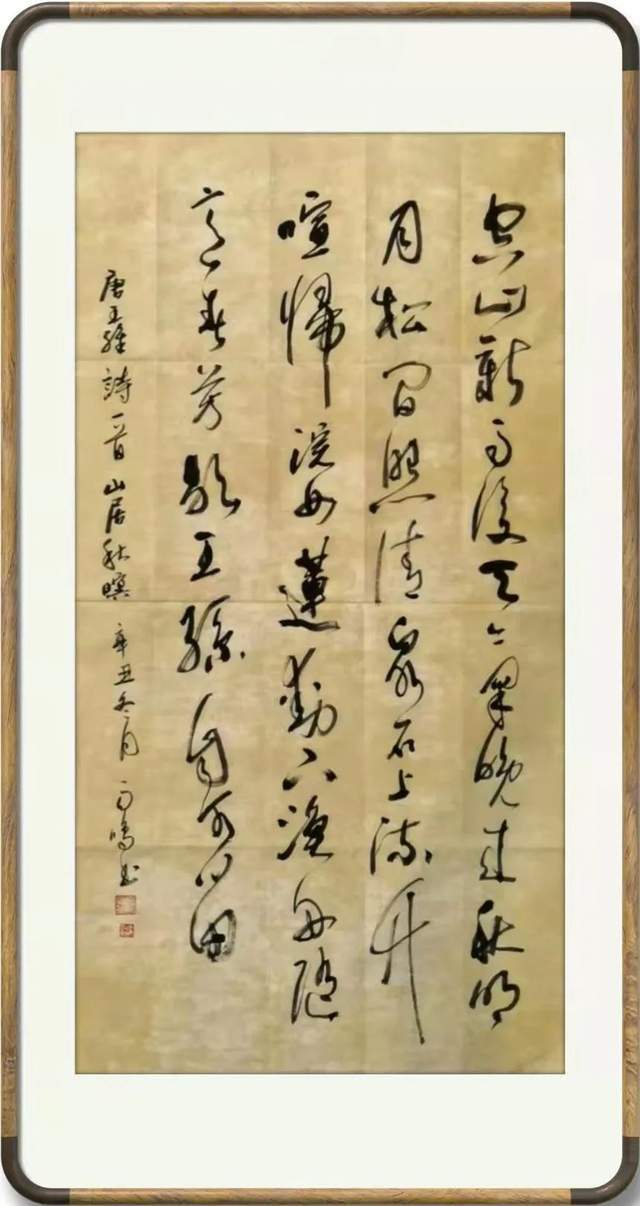 空山新雨後天氣晚來秋明
月松間照清泉石上流竹
喧歸浣女蓮動下漁舟隨
意春芳歇王孫自可留
唐王維詩一首 山居秋暝 辛丑冬月 雨鳴书